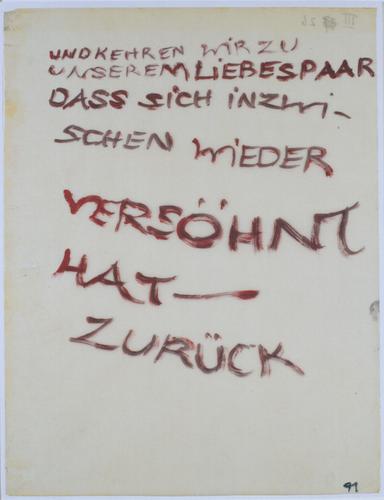 UND KEHREN WIR ZU
UNSEREM LIEBESPAAR
DASS SICH INZWI-
SCHEN WIEDER
VERSÖHNT
HAT—
ZURÜCK